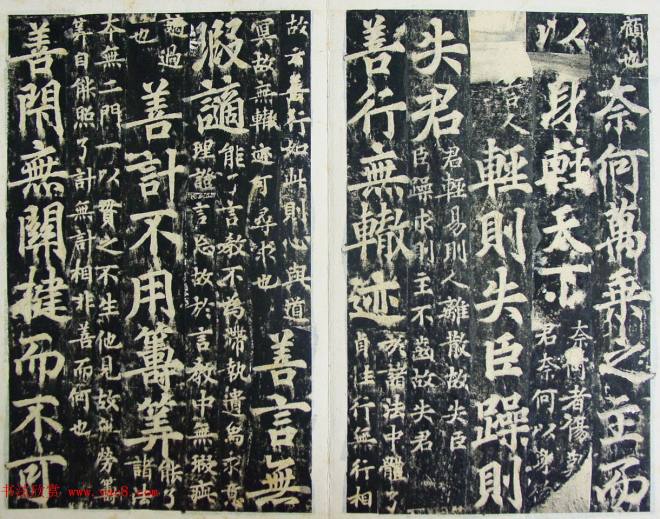 顧也奈何萬乘之主而
以身輕天下奈何者傷歎
君奈何以身
人輕則失臣躁則
失君君輕易則人離散故失臣
臣躁求則主不齒故失君
善行無轍迹於諸法中體了
自性行無行相
故云善行如此則心與道
冥故無轍迹可尋求也善言無
瑕謫能了言教不為滯執遺象求意
理證言忘故於言教中無瑕疵
謫過
也善計不用籌筭能了
諸法
本無二門一以貫之不生他見故無勞籌
筭自能照了計無計相非善而何也
善閇無關揵而不可
书法欣赏 www.yac8.com